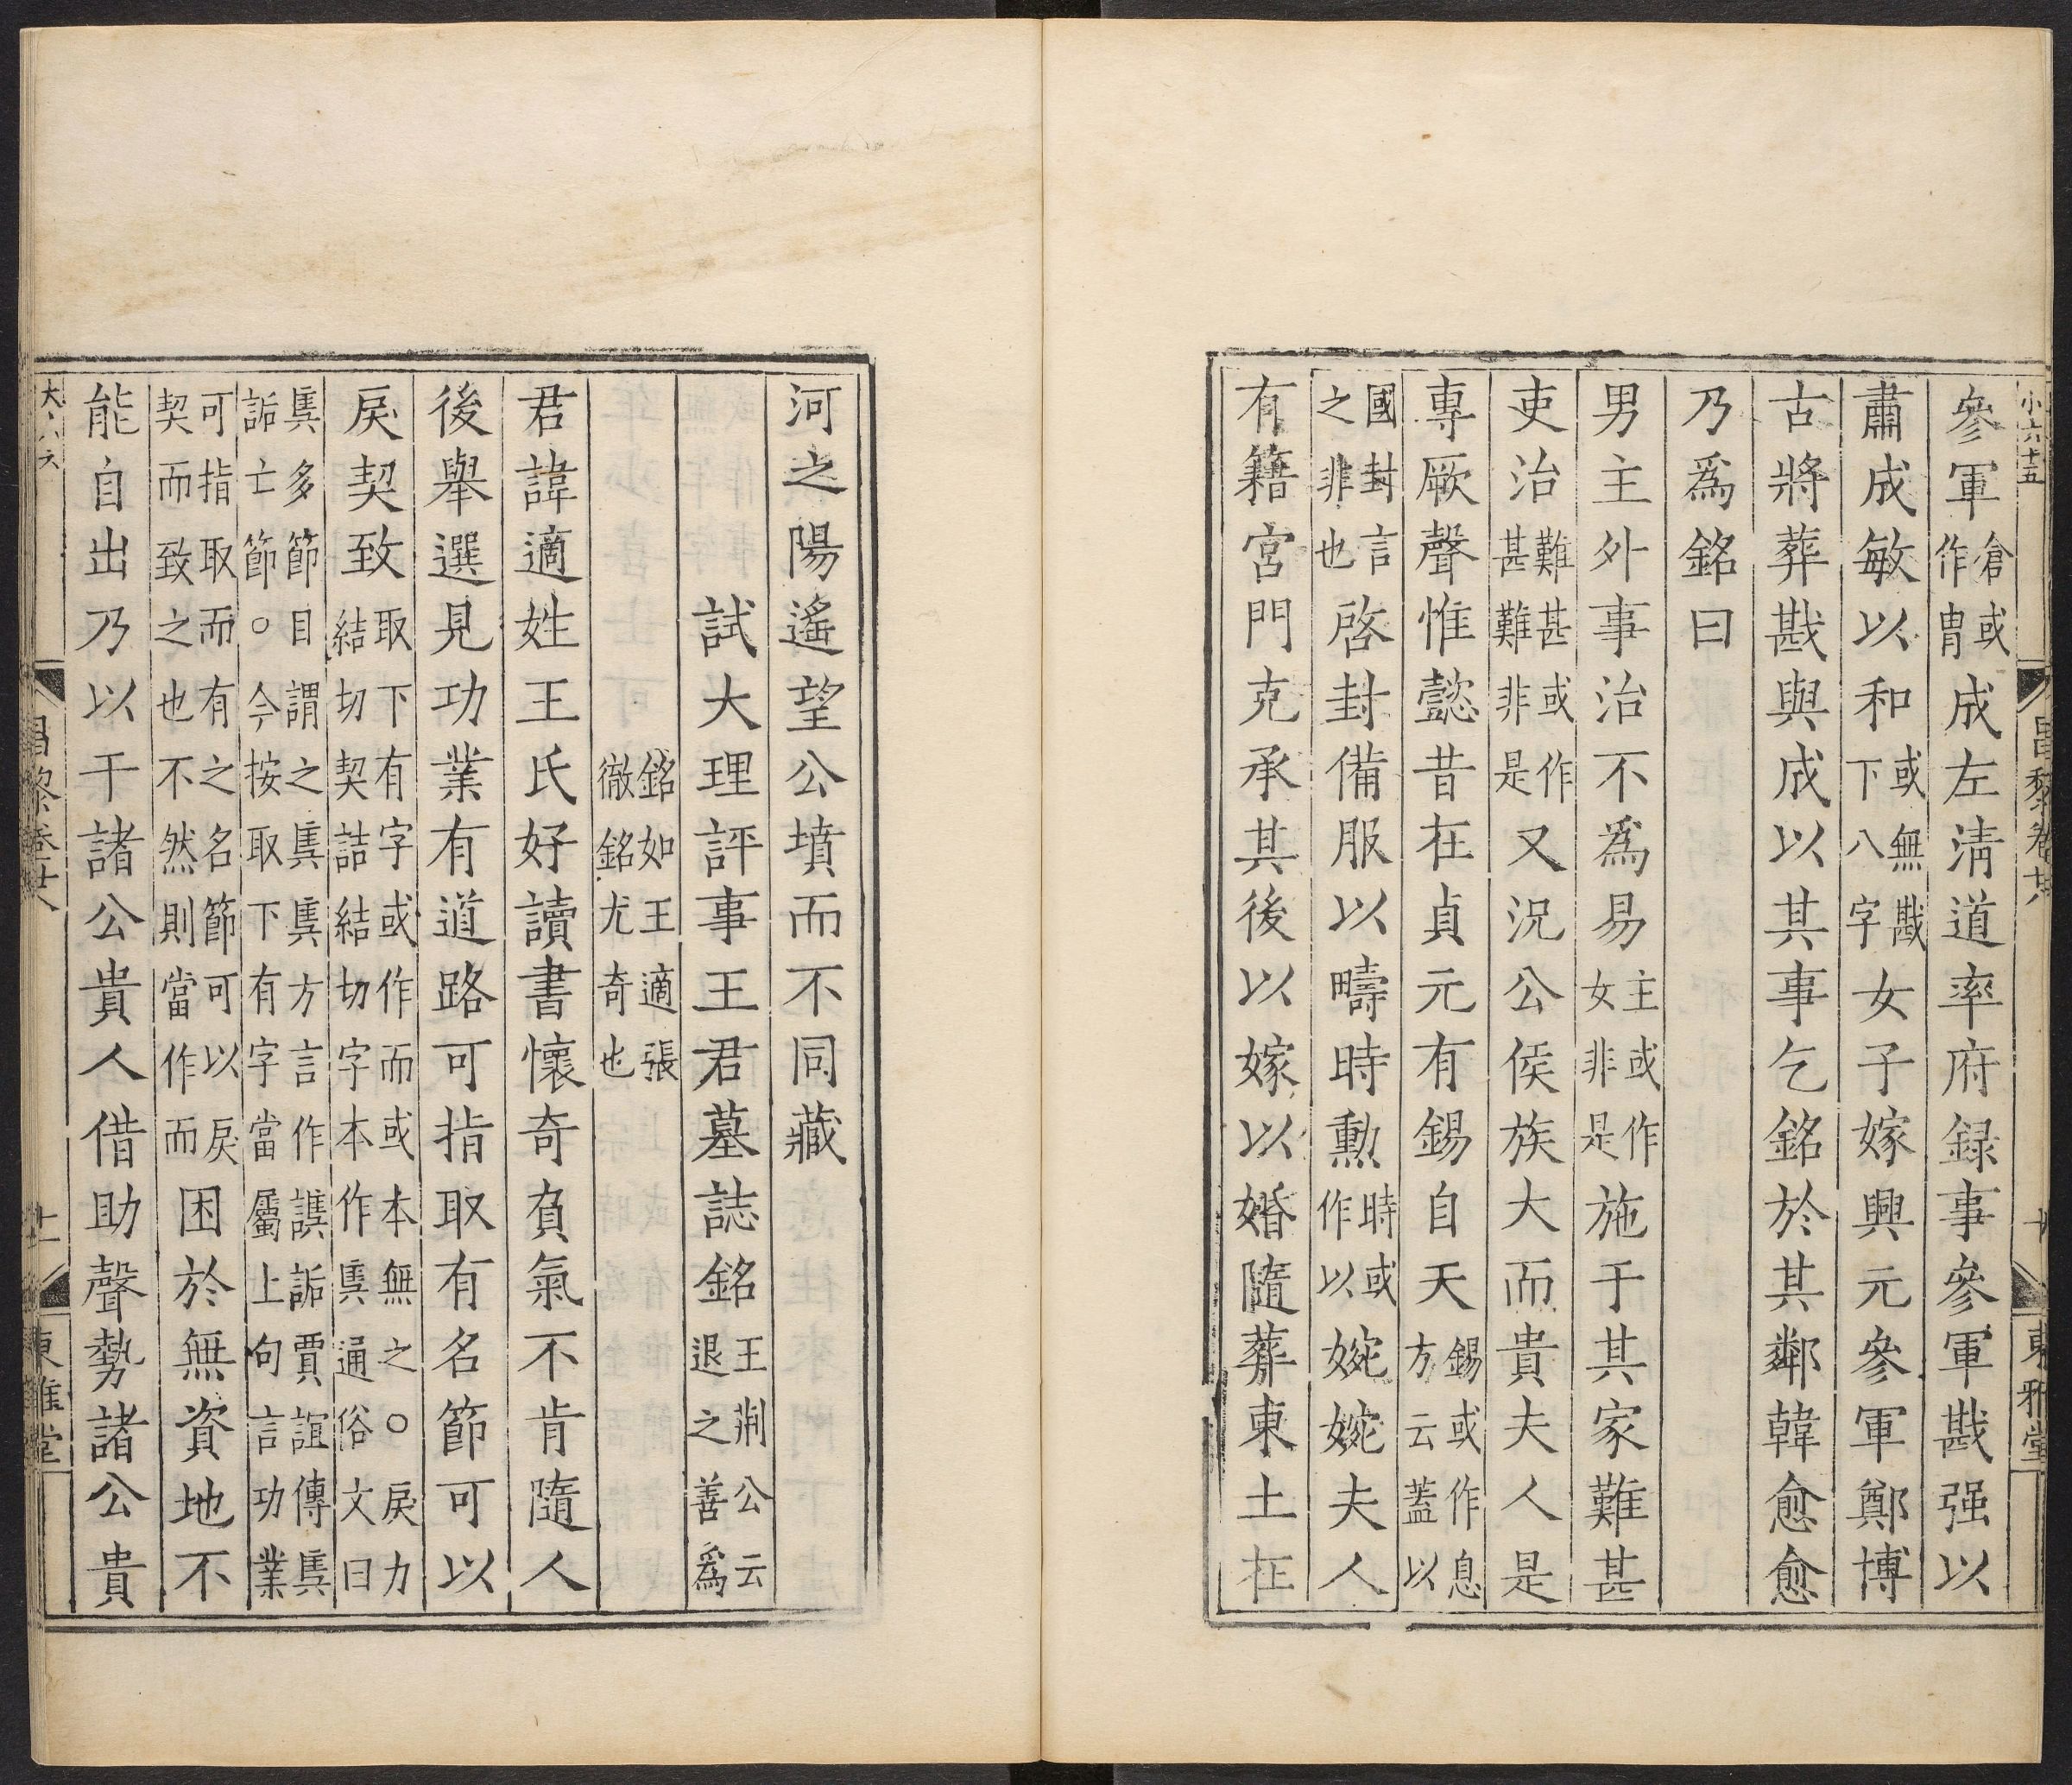 小六十五
昌黎卷廿六
十
東雅堂
參軍倉或作胄成左清道率府録事參軍戡强以
肅成敏以和或無戡下八字女子嫁興元參軍鄭博
古將葬戡與成以其事乞銘於其鄰韓愈愈
乃爲銘曰
男主外事治不爲易主或作女非是施于其家難甚
吏治難甚或作甚難非是又況公侯族大而貴夫人是
專厥聲惟懿昔在貞元有錫自天錫或作息方云蓋以
國封言之非也啓封備服以疇時勳時或作以婉婉夫人
有籍宮門克承其後以嫁以婚隨葬東土在
河之陽遙望公墳而不同藏
試大理評事王君墓誌銘王荆公云退之善爲
銘如王適張徹銘尤奇也
君諱適姓王氏好讀書懷奇負氣不肯隨人
後舉選見功業有道路可指取有名節可以
戾契致取下有字或作而或本無之○戾力結切契詰結切字本作奊通俗文曰
奊多節目謂之奊奊方言作謑詬賈誼傳奊詬亡節○今按取下有字當屬上句言功業
可指取而有之名節可以戾契而致之也不然則當作而困於無資地不
能自出乃以干諸公貴人借助聲勢諸公貴
昌黎卷廿六
十一
東雅堂